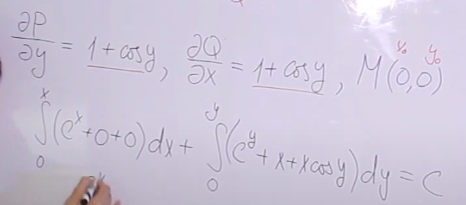 ∂P/∂y = 1 + cosy, ∂Q/∂x = 1 + cosy, M(0,0) x₀ y₀
∫₀ˣ (eˣ + 0 + 0) dx + ∫₀ʸ (eʸ + x + x cosy) dy = C